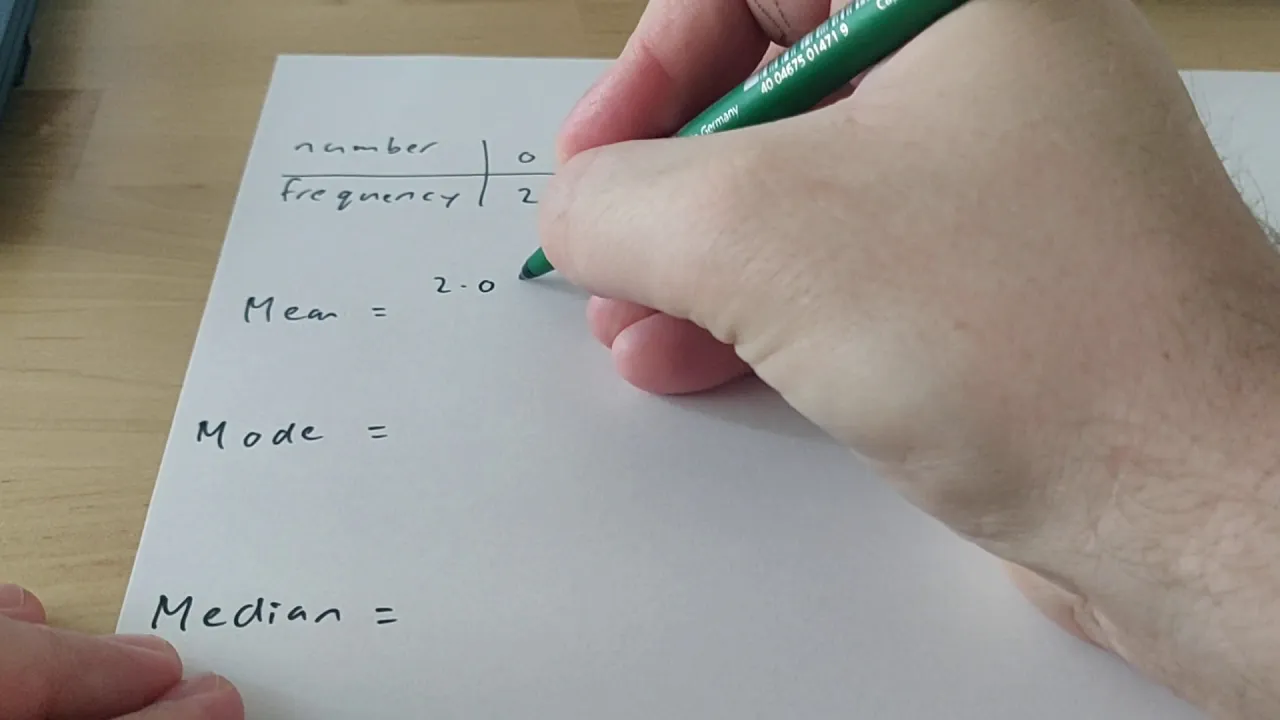 number | 0
frequency | 2
2 · 0
Mean =
Mode =
Median =
Germany
40 04675 01471 9